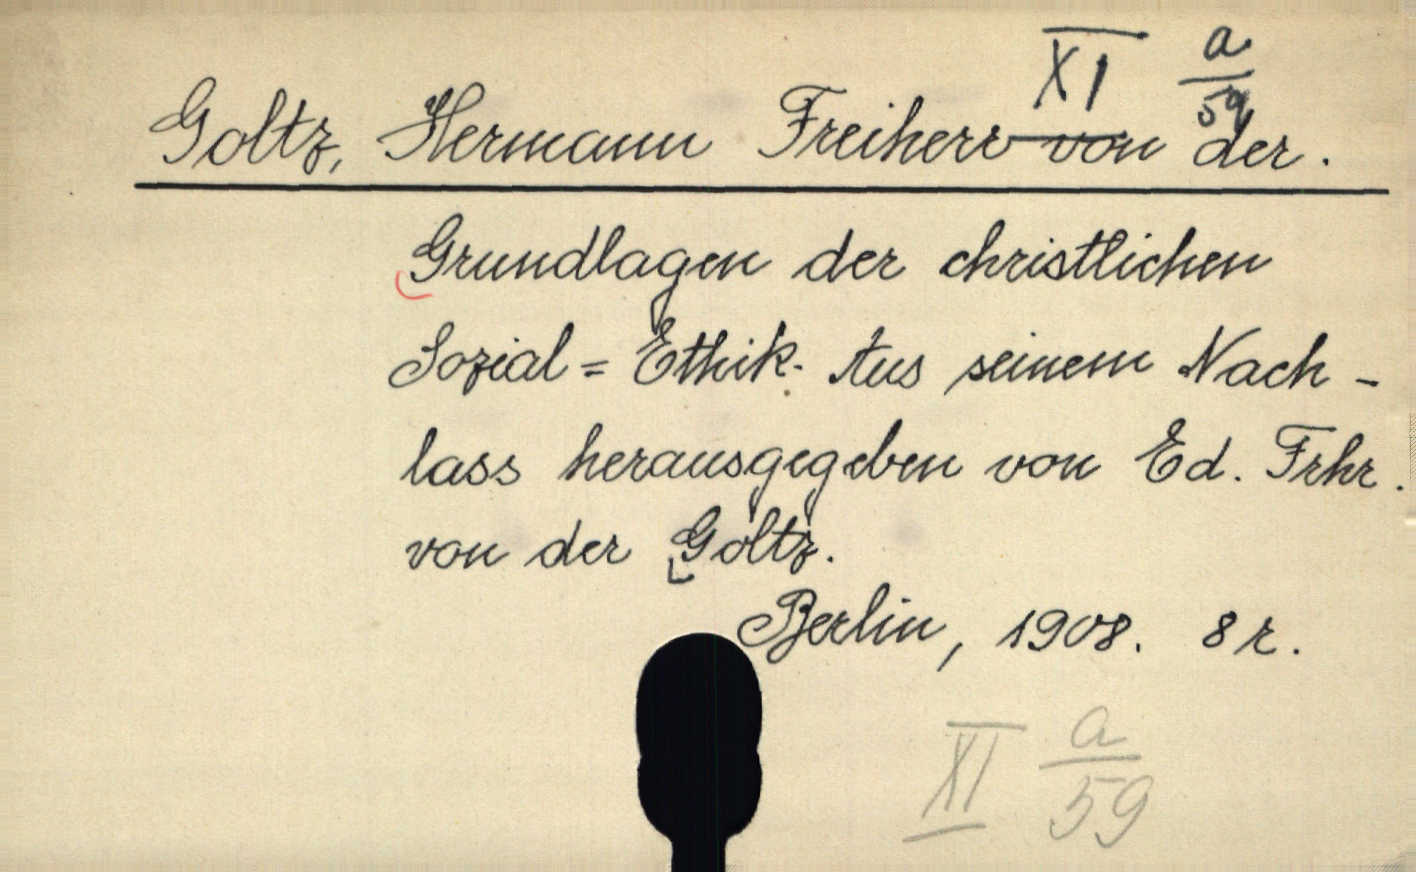 XI a/59
Goltz, Hermann Freiherr von der.
Grundlagen der christlichen
Sozial=Ethik. Aus seinem Nach-
lass herausgegeben von Ed. Frhr.
von der Goltz.
Berlin, 1908. 8 r.
XI a/59